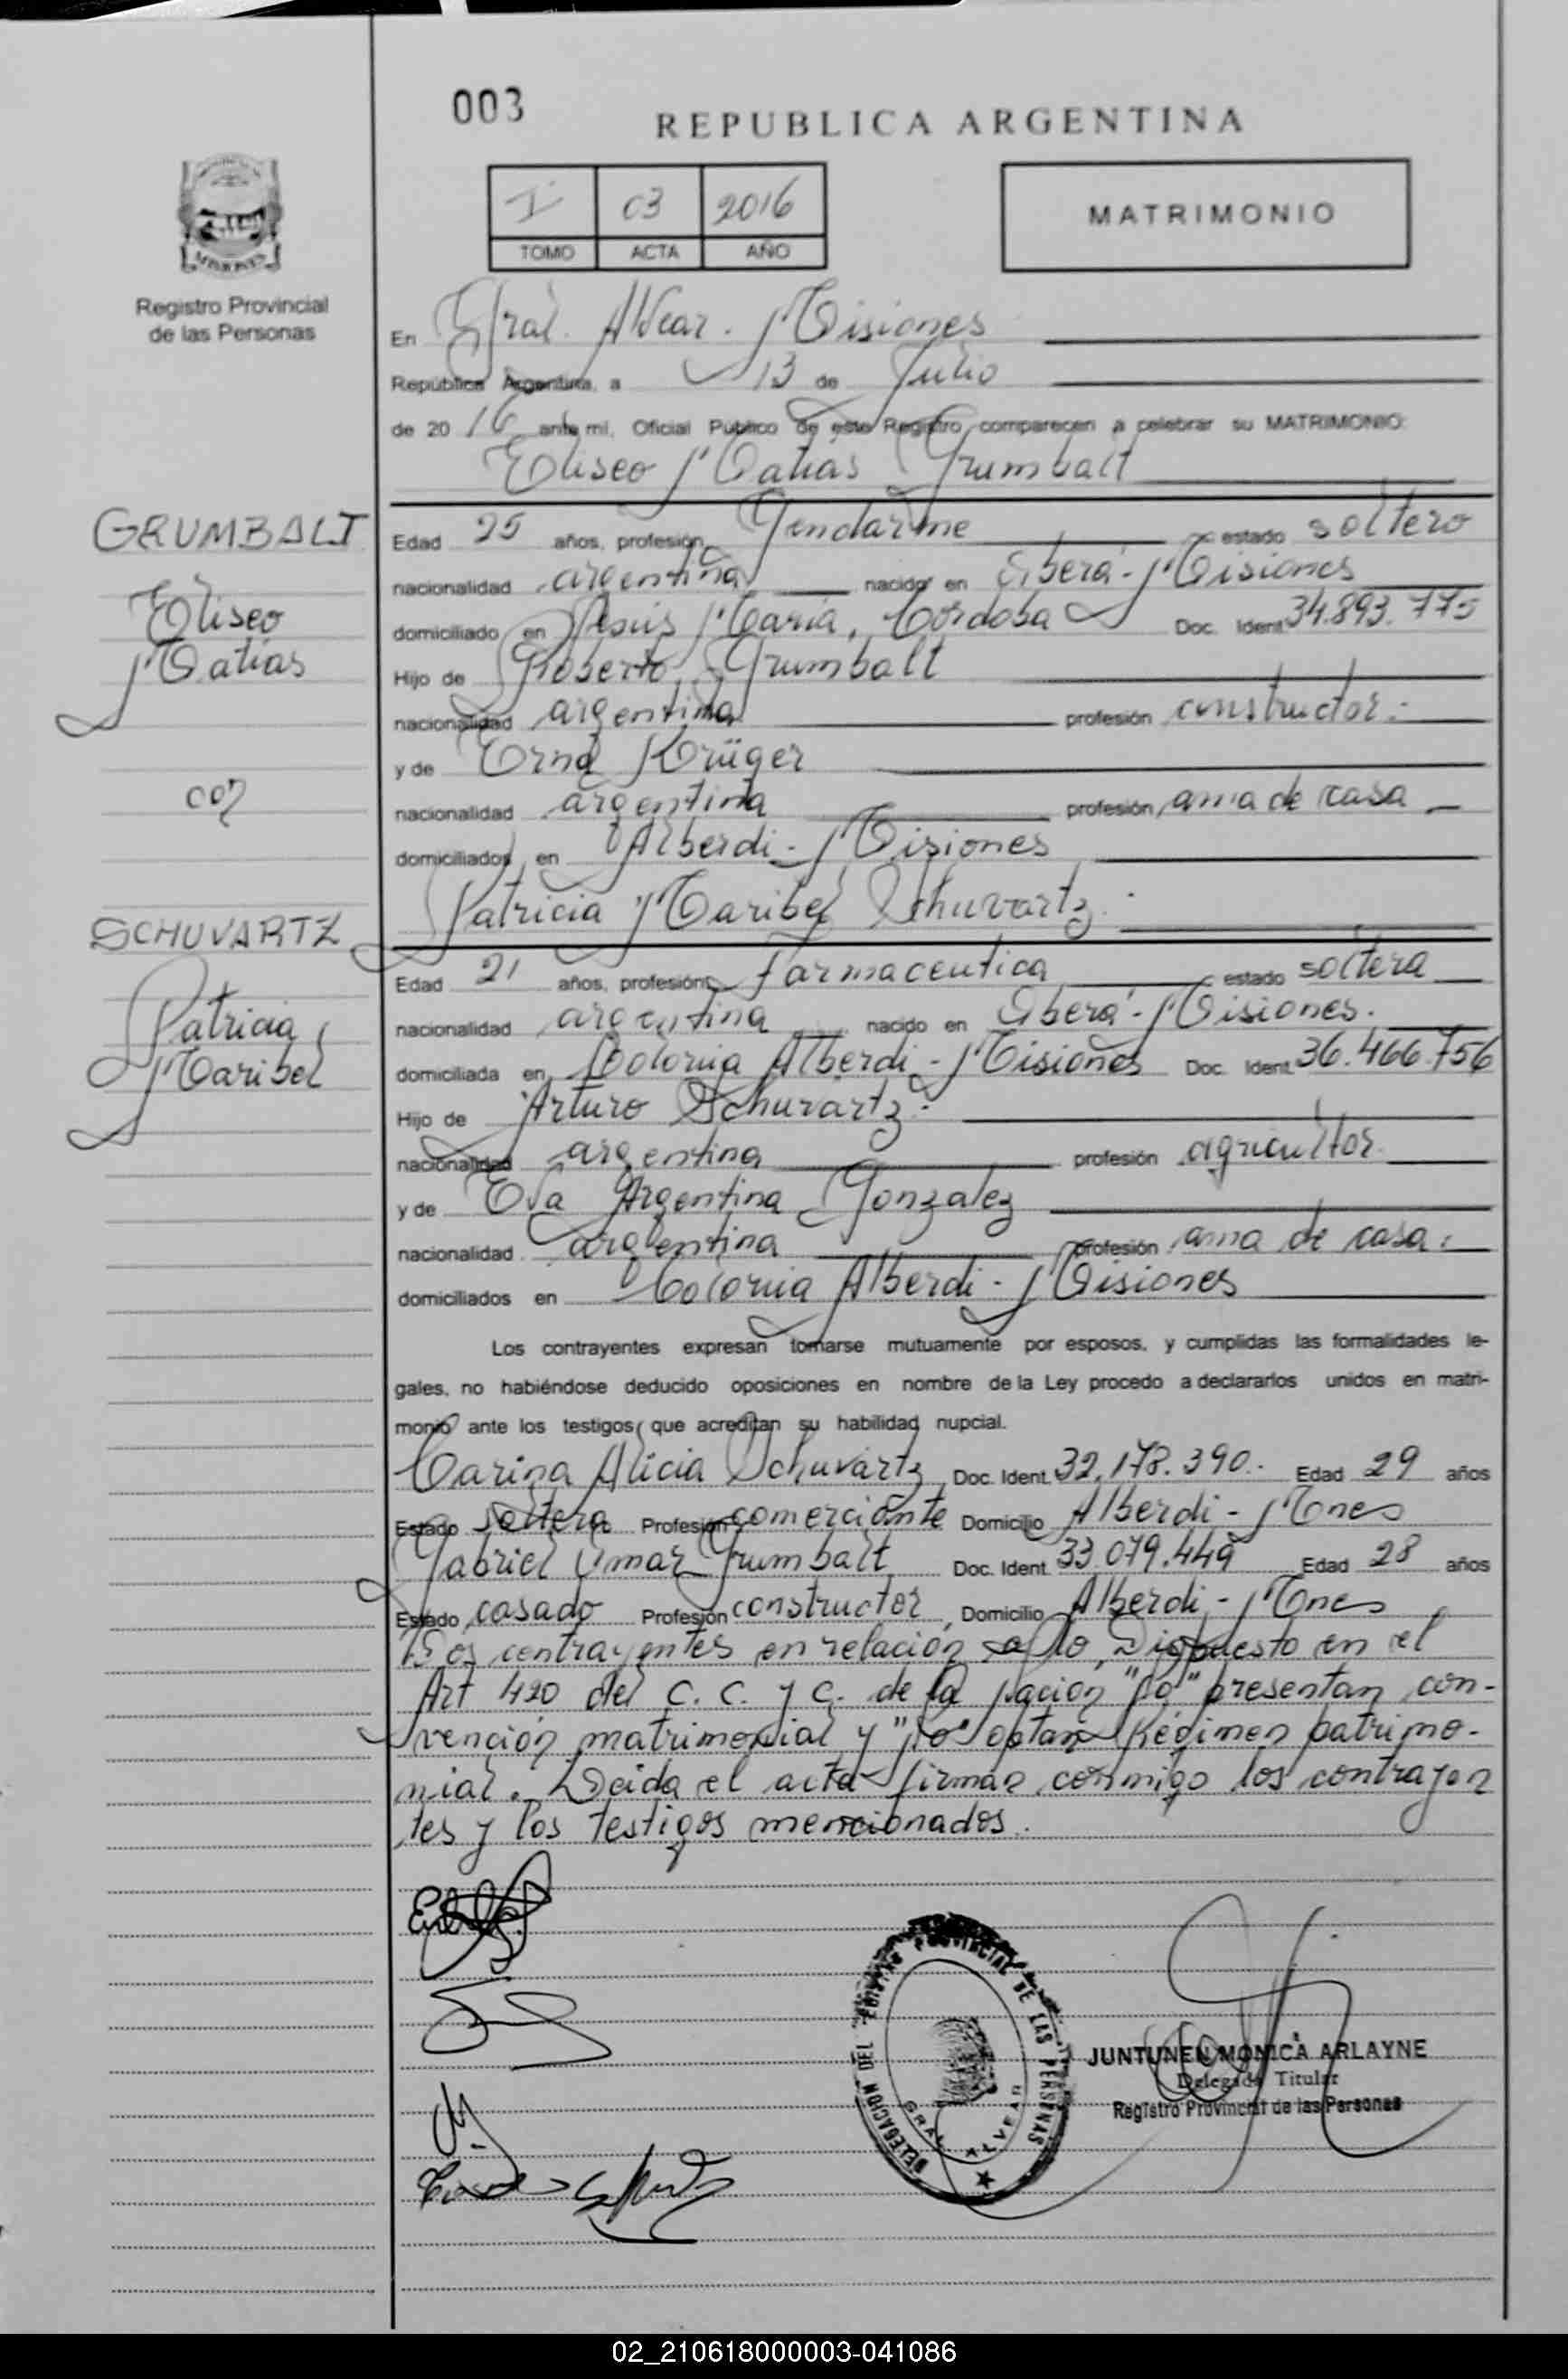 003
REPUBLICA ARGENTINA
I 03 2016
TOMO ACTA AÑO
MATRIMONIO
MISIONES
Registro Provincial
de las Personas
En Gral. Alvear - Misiones
República Argentina, a 13 de Julio
de 2016 ante mi, Oficial Público de este Registro comparecen a celebrar su MATRIMONIO:
Eliseo Matias Grumbalt
GRUMBALT
Eliseo
Matias
con
SCHUVARTZ
Patricia
Maribel
Edad 25 años, profesión Gendarme estado soltero
nacionalidad argentina nacido en Oberá - Misiones
domiciliado en Jesús Maria, Córdoba Doc. Ident. 34.893.775
Hijo de Roberto Grumbalt
nacionalidad argentina profesión constructor.-
y de Erna Krüger
nacionalidad argentina profesión ama de casa
domiciliados en Alberdi - Misiones
Patricia Maribel Schuvartz.-
Edad 21 años, profesión farmaceutica estado soltera
nacionalidad argentina nacido en Oberá - Misiones.
domiciliada en Colonia Alberdi - Misiones Doc. Ident. 36.466.756
Hijo de Arturo Schuvartz.-
nacionalidad argentina profesión agricultor
y de Eva Argentina Gonzalez
nacionalidad argentina profesión ama de casa.
domiciliados en Colonia Alberdi - Misiones
Los contrayentes expresan tomarse mutuamente por esposos, y cumplidas las formalidades le-
gales, no habiéndose deducido oposiciones en nombre de la Ley procedo a declararlos unidos en matri-
monio ante los testigos que acreditan su habilidad nupcial.
Carina Alicia Schuvartz Doc. Ident. 32.178.390.- Edad 29 años
Estado soltera Profesión comerciante Domicilio Alberdi - Mnes
Gabriel Omar Grumbalt Doc. Ident. 33.079.449 Edad 28 años
Estado casado Profesión constructor Domicilio Alberdi - Mnes
Los contrayentes en relación a lo Dispuesto en el
Art 420 del C. C. y C. de la Nación "No" presentan con-
vención matrimonial y "No" optan Régimen patrimo-
nial. Leida el acta firman conmigo los contrayen
tes y los testigos mencionados.
DELEGACION DEL REGISTRO PROVINCIAL DE LAS PERSONAS
GRAL ALVEAR
JUNTUNEN MONICA ARLAYNE
Delegada Titular
Registro Provincial de las Personas
02_210618000003-041086